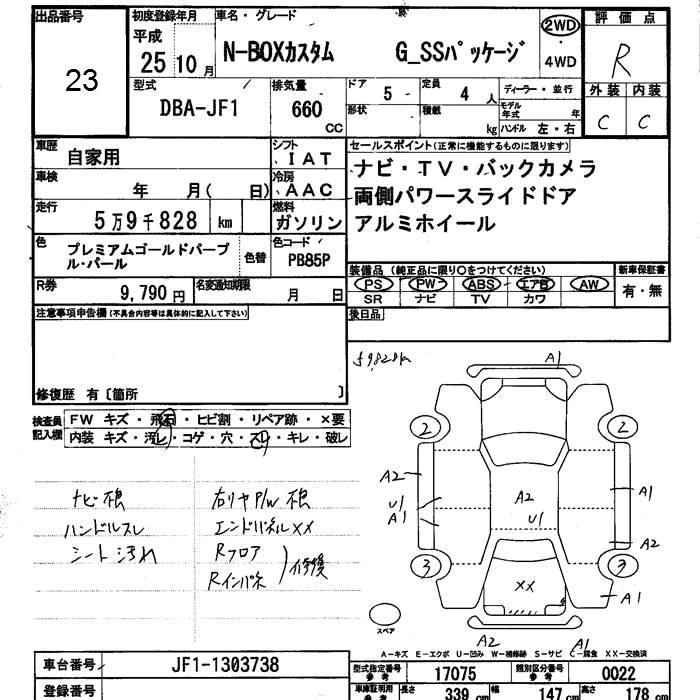 出品番号
23
初度登録年月
平成
25 10 月
車名・グレード
N-BOXカスタム G_SSパッケージ
2WD
・
4WD
評価点
R
外装 内装
C C
型式
DBA-JF1
排気量
660
cc
ドア
5
形状
定員
4 人
積載
kg
ディーラー・並行
モデル年式 年
ハンドル 左・右
車歴
自家用
シフト
IAT
車検
年 月( 日)
冷房
AAC
走行
5万9千828 km
燃料
ガソリン
セールスポイント(正常に機能するものに限ります)
ナビ・TV・バックカメラ
両側パワースライドドア
アルミホイール
色
プレミアムゴールドパープ
ル・パール
色替
色コード
PB85P
R券
9,790 円
名変通知期限
月 日
装備品(純正品に限り○をつけてください)
PS PW ABS エアB AW
SR ナビ TV カワ
新車保証書
有・無
後日品
注意事項申告欄(不具合内容等は具体的に記入して下さい)
修復歴 有〔箇所 〕
検査員
記入欄
FW キズ・飛石・ヒビ割・リペア跡・×要
内装 キズ・汚レ・コゲ・穴・スレ・キレ・破レ
59828k
ナビ 根
ハンドルスレ
シート汚れ
右リヤP/W 根
エンドパネルXX
Rフロア
Rインパネ
修復
A1
2 2
A2
U1
A1
A2
U1
A1
A2
3 3
XX
A1
スペア
A2 A1
A-キズ E-エクボ U-凹み W-補修跡 S-サビ C-腐食 XX-交換済
車台番号
JF1-1303738
登録番号
型式指定番号
参考
17075
類別区分番号
参考
0022
車庫証明用
参考
長さ
339 cm
幅
147 cm
高さ
178 cm